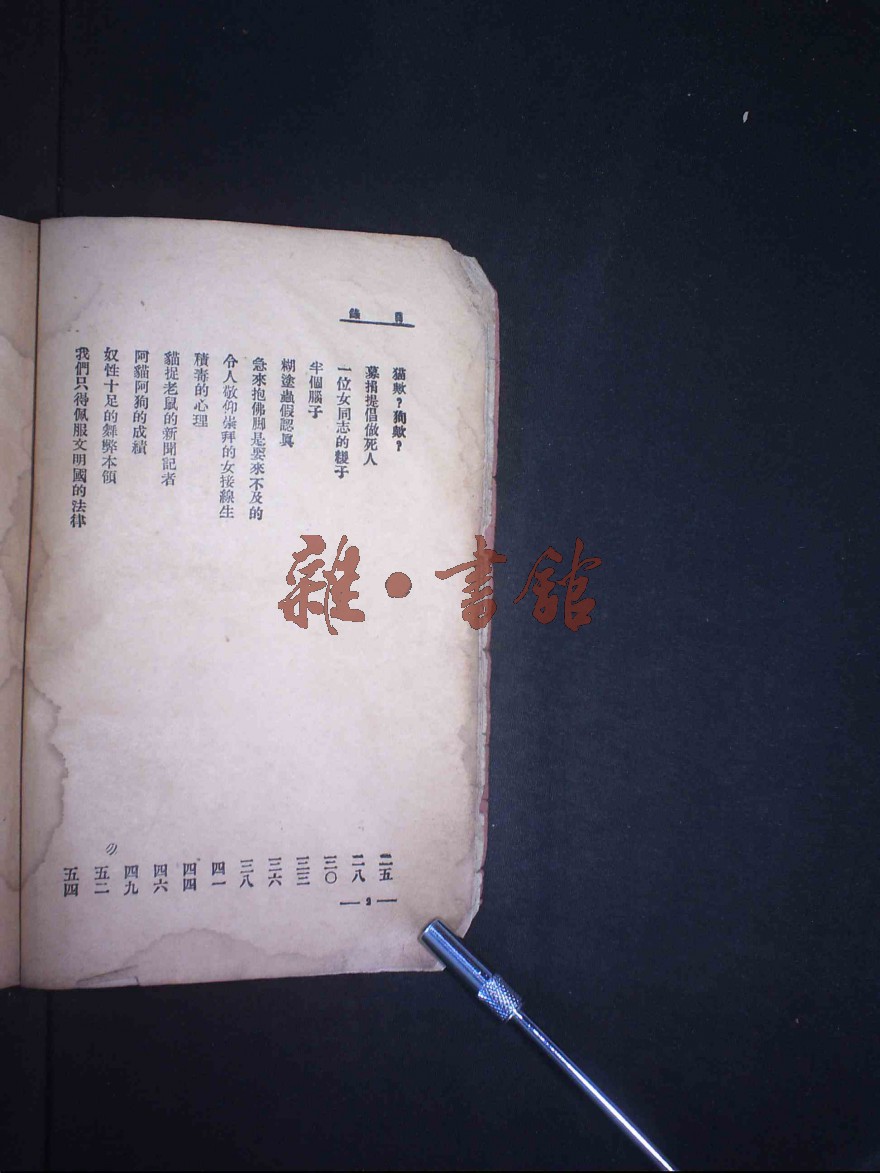 目錄
猫歟?狗歟? 二五
募捐提倡做死人 二八
一位女同志的 子 三〇
半個腦子 三三
糊塗蟲假認眞 三六
急來抱佛脚是要來不及的 三八
令人敬仰崇拜的女接線生 四一
積毒的心理 四四
貓捉老鼠的新聞記者 四六
阿貓阿狗的成績 四九
奴性十足的舞弊本領 五二
我們只得佩服文明國的法律 五四
— 2 —
雜·書館